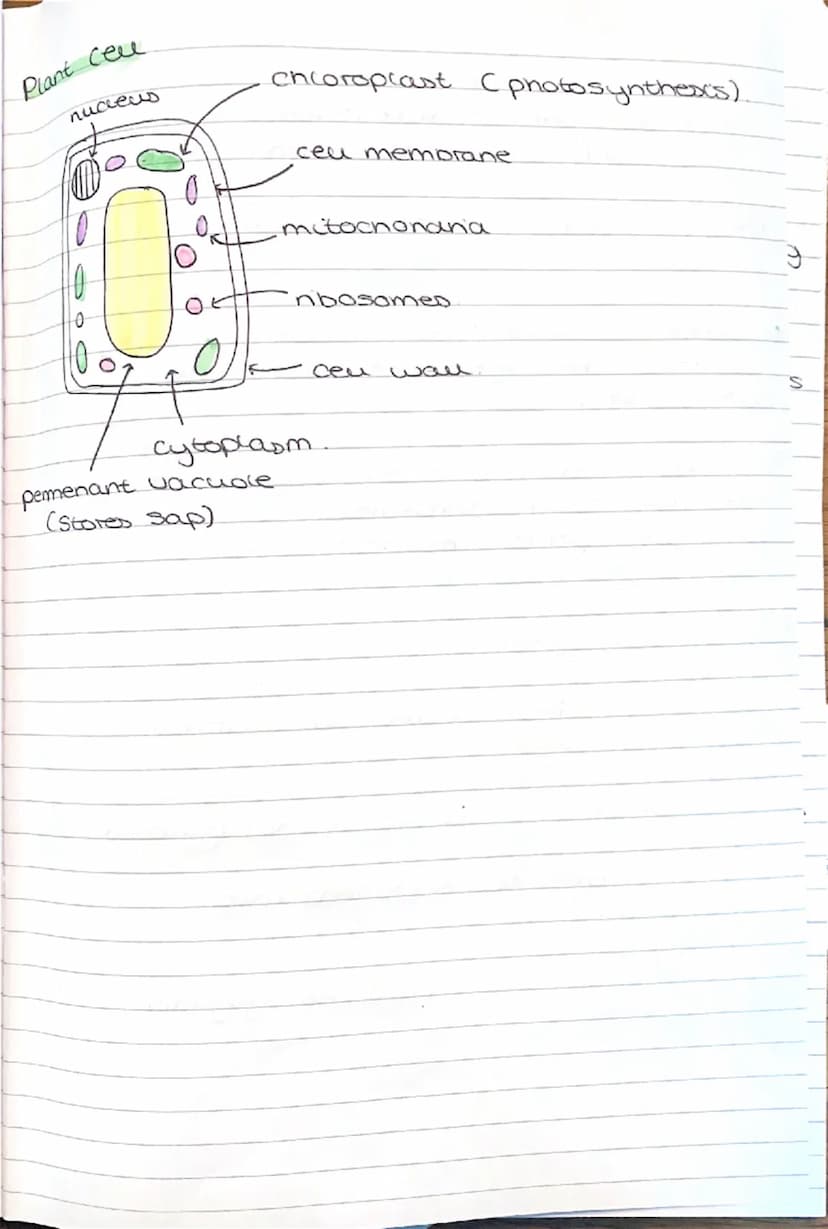 Plant cell
nucleus
chloroplast (photosynthesis)
cell membrane
mitochondria
ribosomes
cell wall
cytoplasm.
permenant vacuole
(stores sap)
y
s